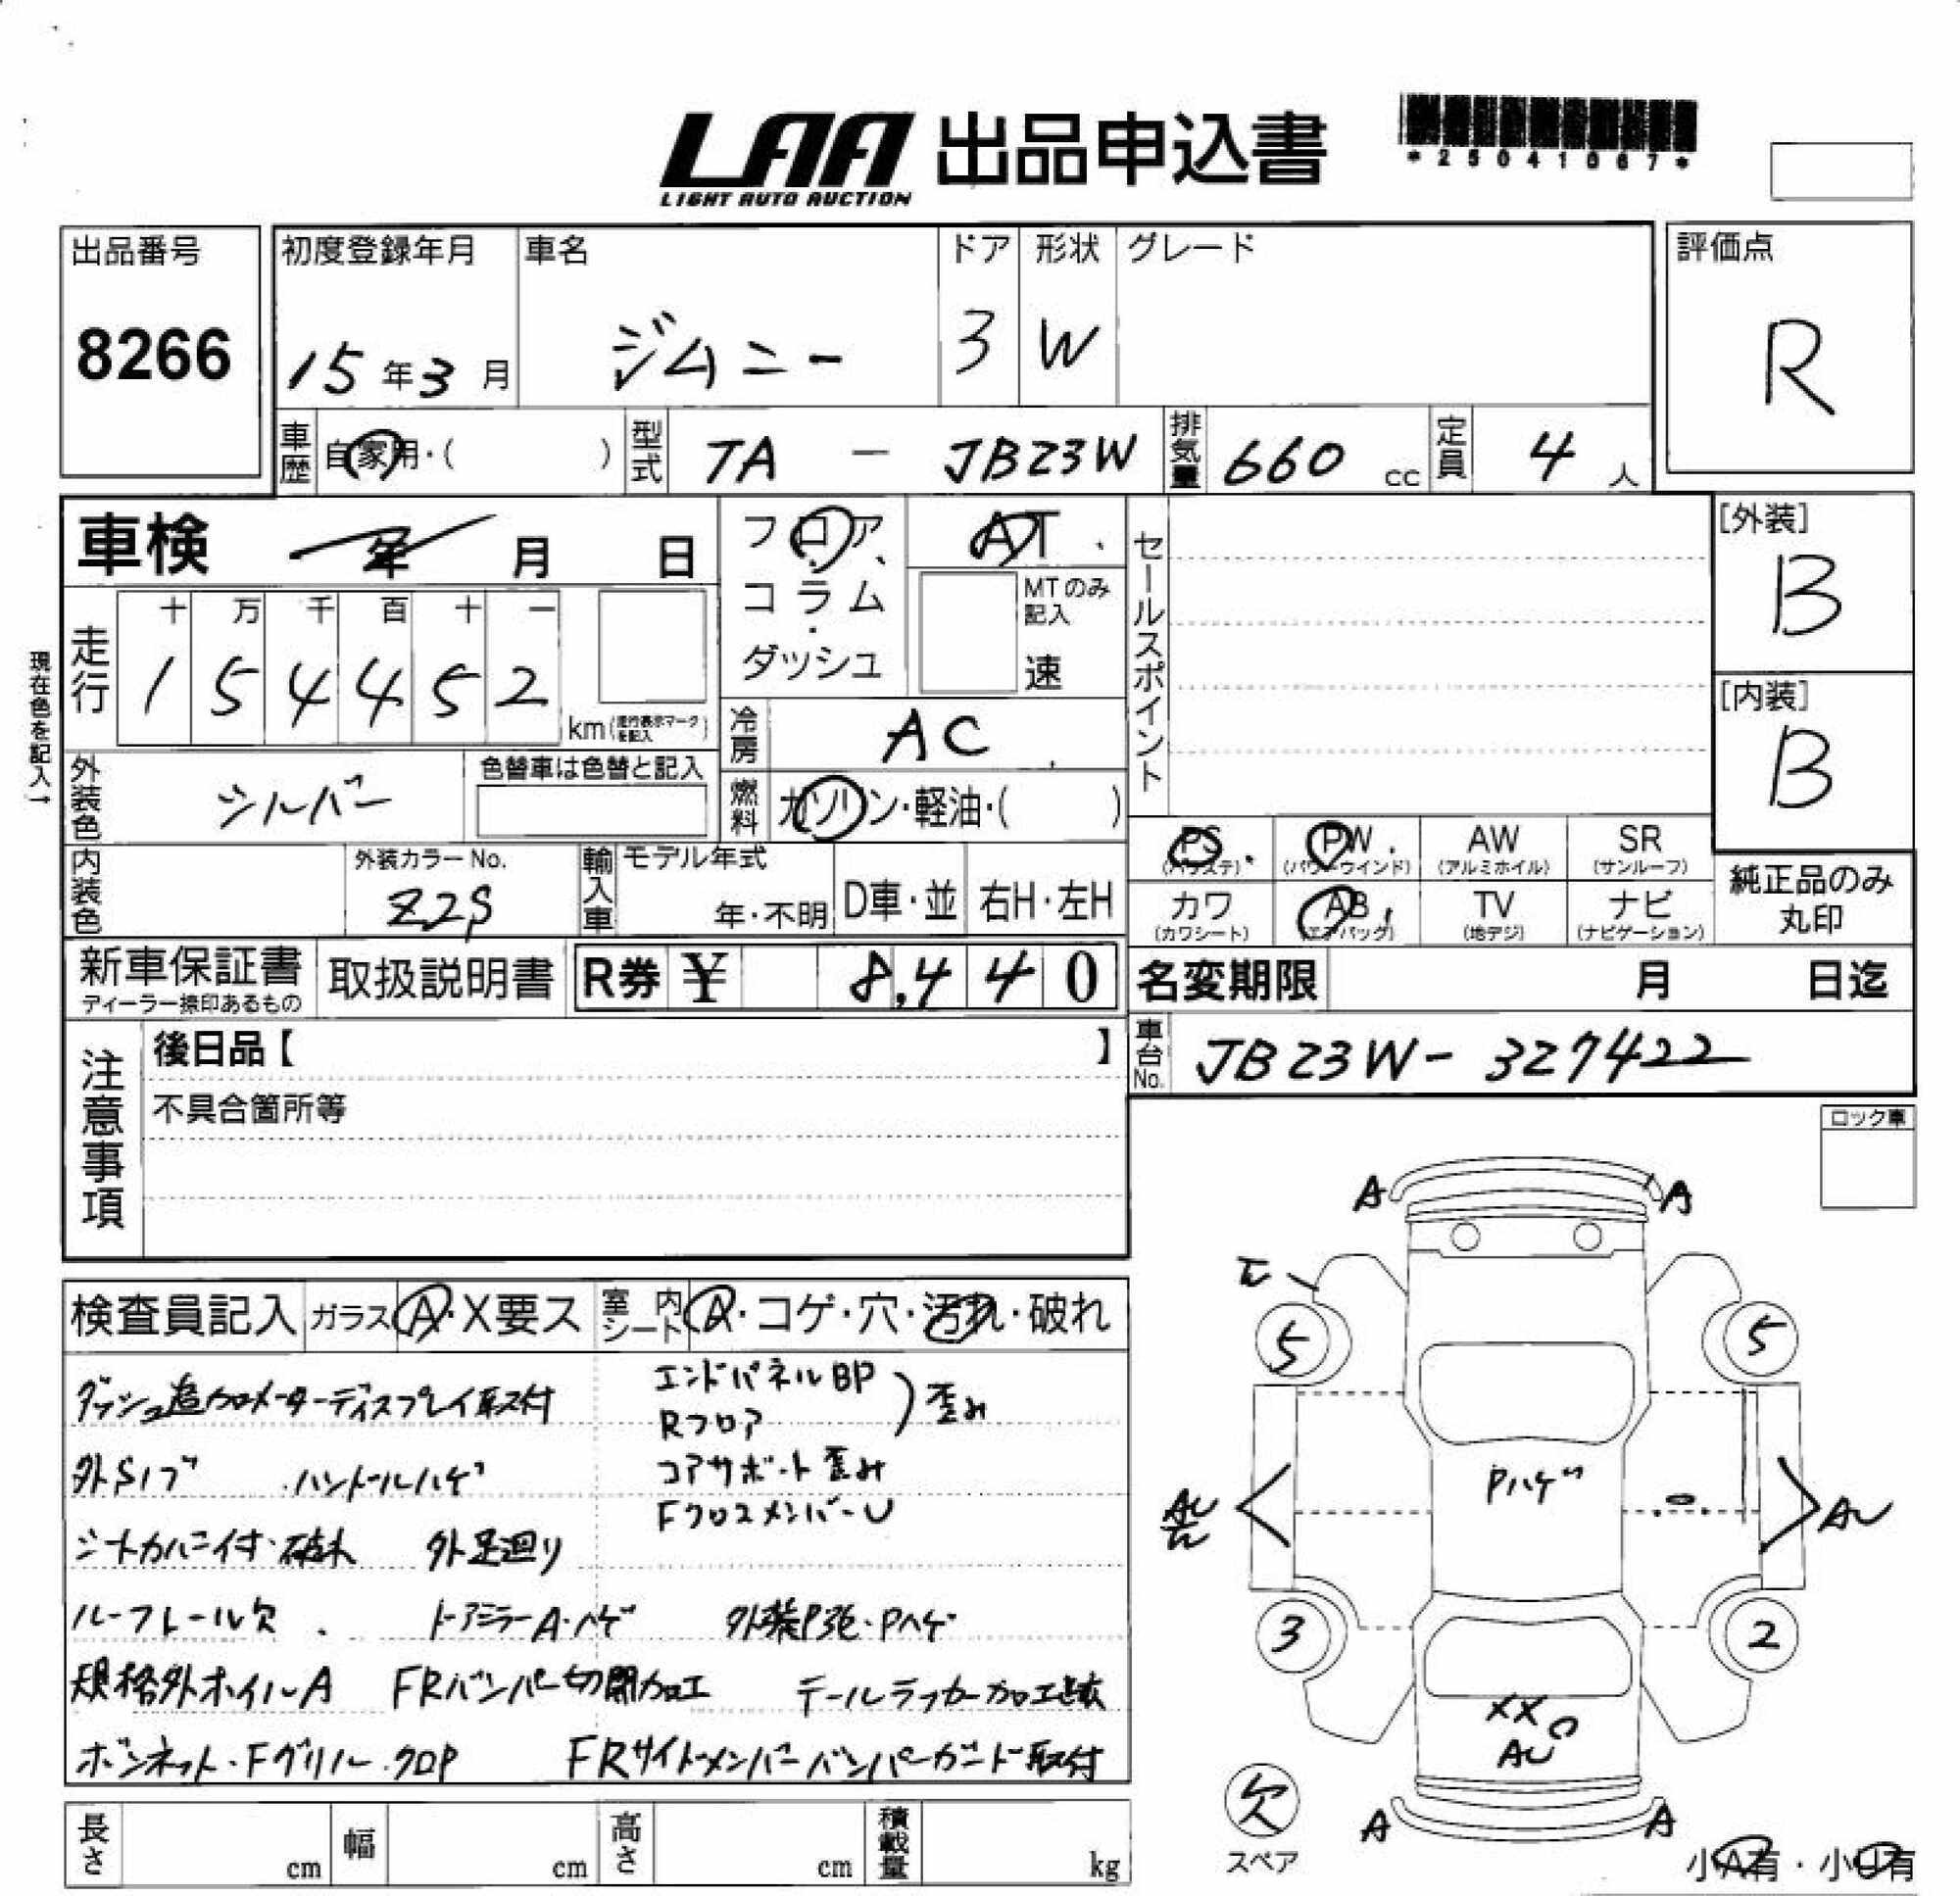 LAA 出品申込書
LIGHT AUTO AUCTION
*25041067*
出品番号
8266
初度登録年月
15年3月
車名
ジムニー
ドア
3
形状
W
グレード
評価点
R
車歴
自家用・( )
型式
TA - JB23W
排気量
660 cc
定員
4 人
車検 年 月 日
フロア・
コラム・
ダッシュ
AT
MTのみ記入
速
セールスポイント
[外装]
B
[内装]
B
現在色を記入→
走行
十 万 千 百 十 一
1 5 4 4 5 2
km(走行表示マークを記入)
冷房
AC
外装色
シルバー
色替車は色替と記入
燃料
ガソリン・軽油・( )
内装色
外装カラーNo.
Z2S
輸入車
モデル年式
年・不明
D車・並
右H・左H
PS
(パワステ)
PW
(パワーウインド)
AW
(アルミホイル)
SR
(サンルーフ)
カワ
(カワシート)
AB
(エアバッグ)
TV
(地デジ)
ナビ
(ナビゲーション)
純正品のみ
丸印
新車保証書
ディーラー捺印あるもの
取扱説明書
R券 ¥ 8,440
名変期限 月 日迄
車台No.
JB23W-327422
注意事項
後日品【 】
不具合箇所等
ロック車
検査員記入
ガラス A・X要ス
室内シート A・コゲ・穴・汚れ・破れ
ダッシュ追加メーターディスプレイ取付
エンドパネルBP
Rフロア
)歪み
外Sノブ ハンドルハゲ
コアサポート歪み
FクロスメンバーU
シートカバー付・破れ 外足廻り
ルーフレール欠 ドアミラーA・ハゲ 外装P跡・Pハゲ
規格外ホイルA FRバンパー切開加工 テールランプカー加工
ボンネット・Fグリル クロP FRサイドメンバーバンパーガード取付
長さ cm
幅 cm
高さ cm
積載量 kg
A A
エ
5 5
Pハゲ
AU
AU
3 2
XX
AU
A A
欠
スペア
小A有・小U有